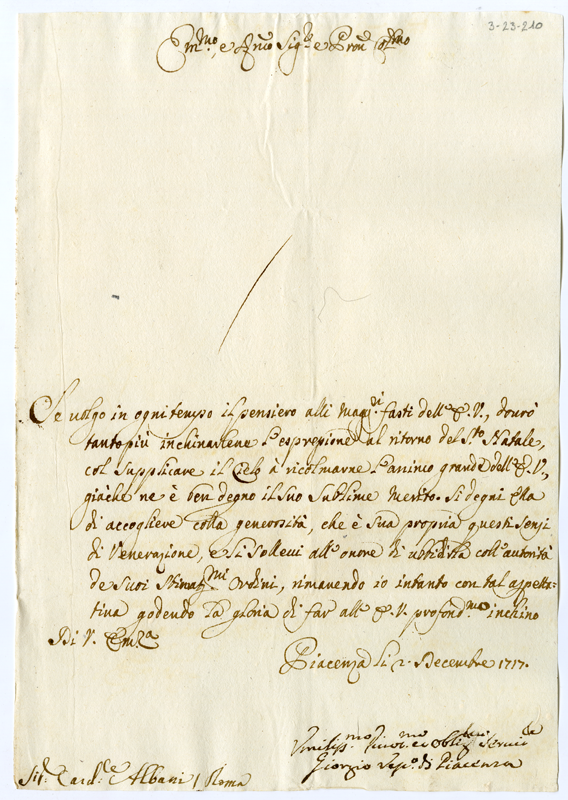 3-23-210
Em.mo, e Rmo Sig.re e Pron Col.mo
Se volgo in ogni tempo il pensiero alli mag.di fasti dell' E.V., dourò
tanto più inchinarlene l'espressione al ritorno del S.to Natale,
col supplicare il Cielo à ricolmarne l'animo grande dell' E.V.,
giàche ne è ben degno il Suo Sublime merito. Si degni Ella
di accogliere colla generosità, che è Sua propria questi sensi
di Venerazione, e mi sollevi all' onore di ubidirla coll' autorità
de Suoi Stimat.mi Ordini, rimanendo io intanto con tal aspetta-
tiva godendo la gloria di far all' E.V. profond.mo inchino
Di V. Em.za
Piacenza li 2. Decembre 1717.
Umiliss.mo Diuot.mo ed Obblig.mo Seruid.e
Giorgio Vesc.o di Piacenza
Sig. Card.le Albani / Roma